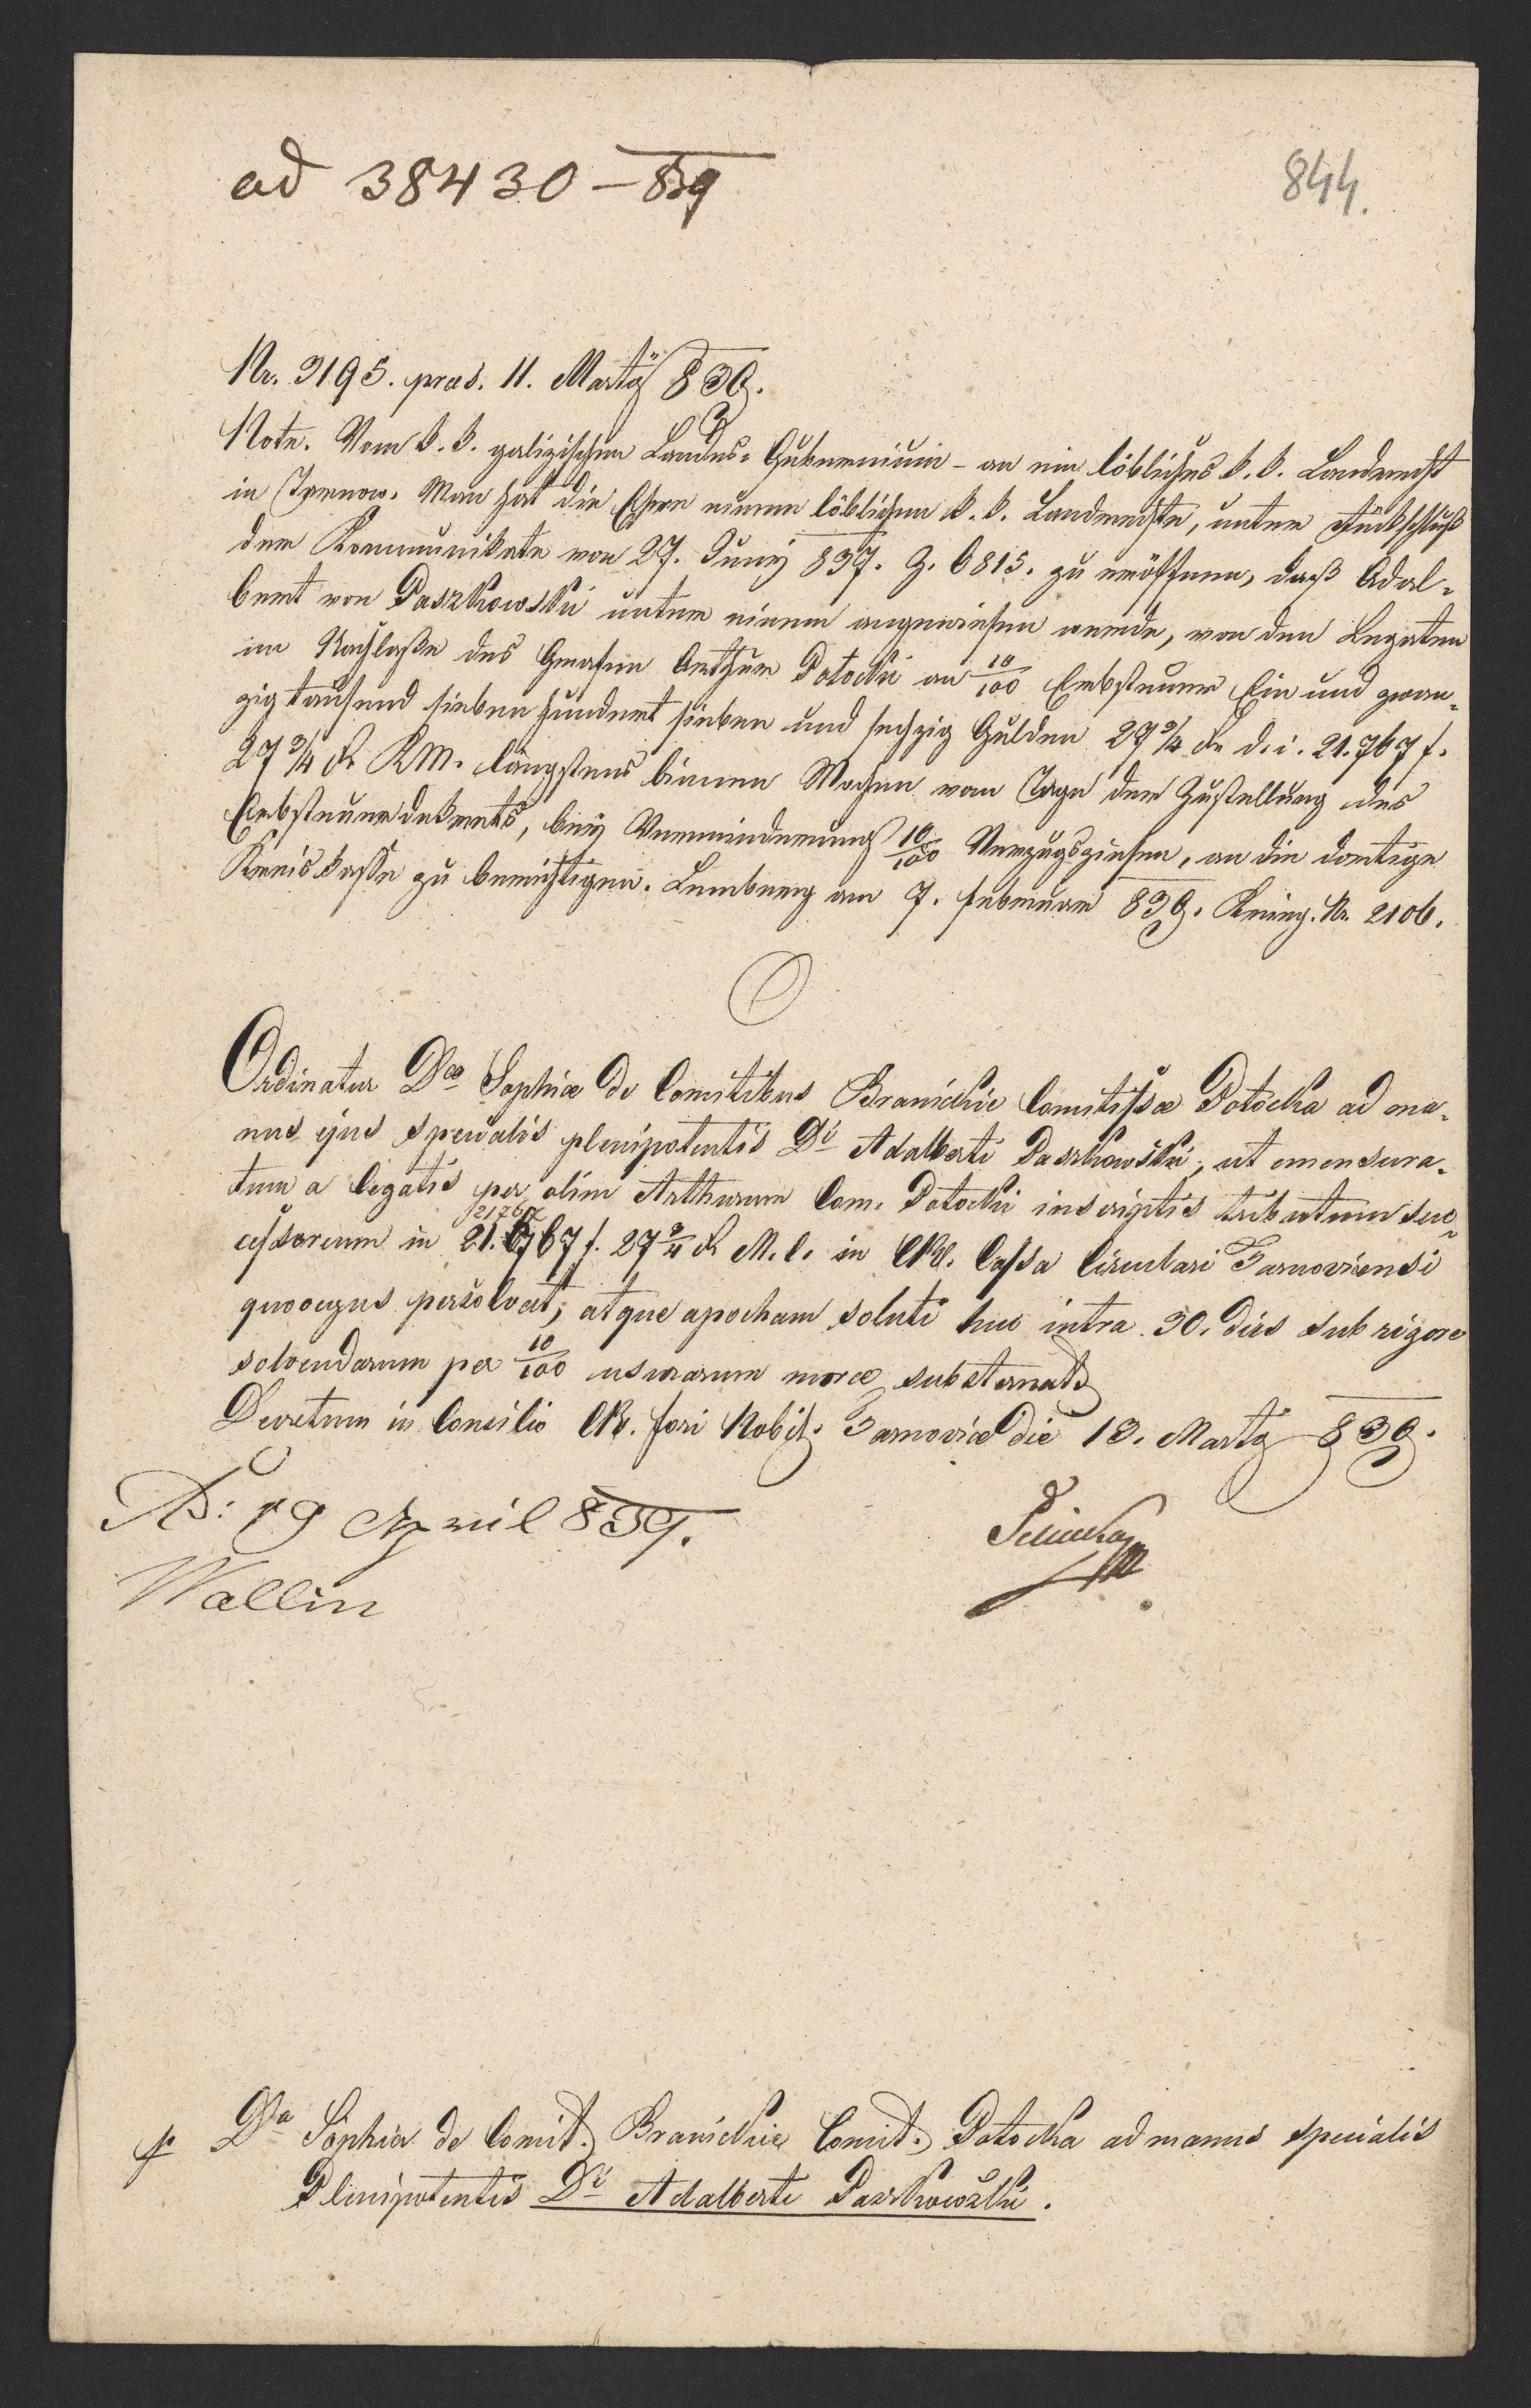 ad 38430 – 839
844.
Nr. 3195. præs. 11. Martÿ 839.
Note. Vom k. k. galizischen Landes-Gubernium – an ein löbliches k. k. Landrecht
in Tarnow. Man hat die Ehre einem löblichen k. k. Landrechte, unter Rückschluß
der Kommunikate von 27. Juny 837. Z. 6815. zu eröffnen, daß Adal-
bert von Paszkowski unter einem angewiesen werde, von den Legaten
im Nachlaße des Grafen Arthur Potocki an 10/100 Erbsteuer Ein und zwan-
zig tausend sieben hundert sieben und sechzig Gulden 27 3/4 Xr d. i. 21.767 f.
27 3/4 Xr KM. längstens binnen Wochen vom Tage der Zustellung des
Erbsteuerdekrets, bey Vermeidung 10/100 Verzugszinsen, an die dortige
Kreiskasse zu berichtigen. Lemberg am 7. Februar 839. Nr. 2106.
Ordinatur Dæ Sophiæ de Comitibus Branickie Comitissæ Potocka ad ma-
nus ejus specialis plenipotentis Di Adalberti Paszkowski, ut emensura-
tum a legatis per olim Arthurum Com. Potocki inscriptis tributum suc-
21767
cessorium in 21.767 f. 27 3/4 Xr M. C. in CR. Cassa Circulari Tarnoviensi
quoocyus persolvat, atque apocham soluti huc intra 30. dies sub rigore
solvendarum per 10/100 usurarum moræ substernat.
Decretum in Consilio CR. Fori Nobil. Tarnoviæ die 13. Martÿ 839.
19 April 839.
Wallin
Da Sophia de Comit. Branickie Comit. Potocka ad manus specialis
Plenipotentis Di Adalberti Paszkowski.